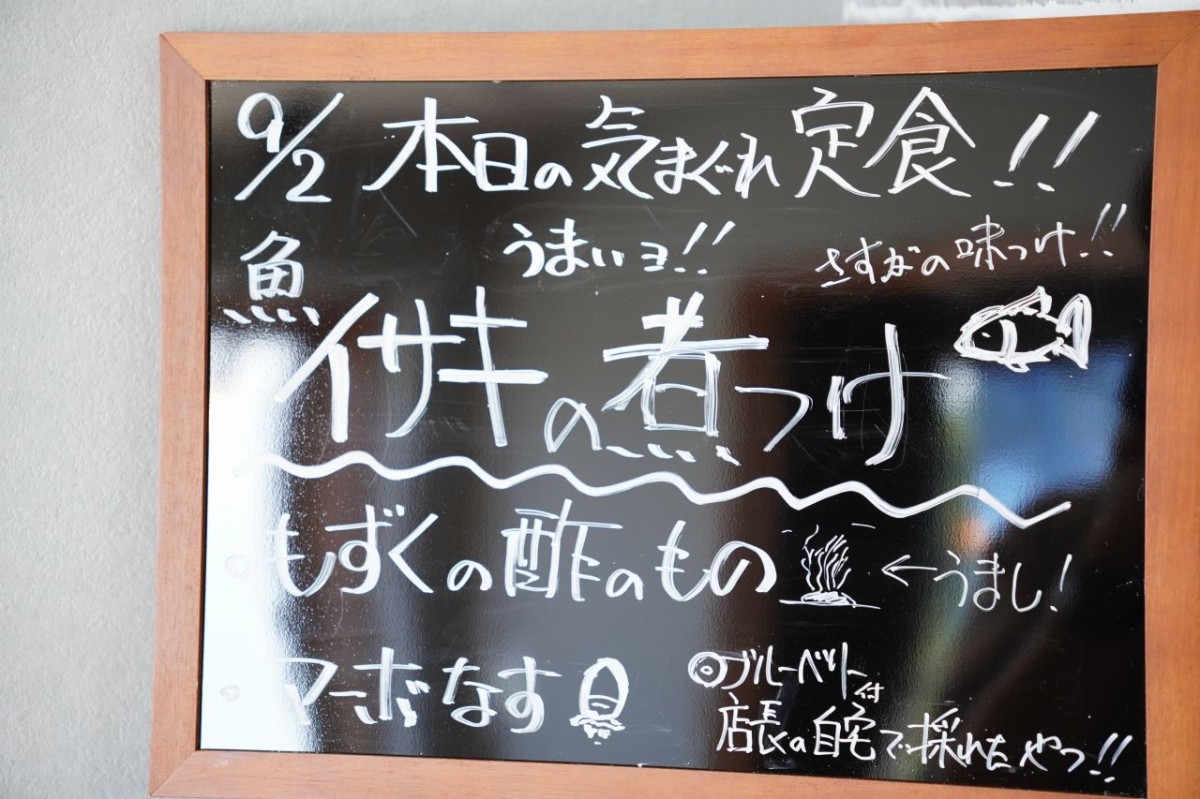 9/2 本日の気まぐれ定食!!
魚 うまいヨ!! さすがの味つけ!!
イサキの煮つけ
もずくの酢のもの ←うまし!
マーボなす
◎ブルーベリー付
店長の自宅で採れたやつ!!